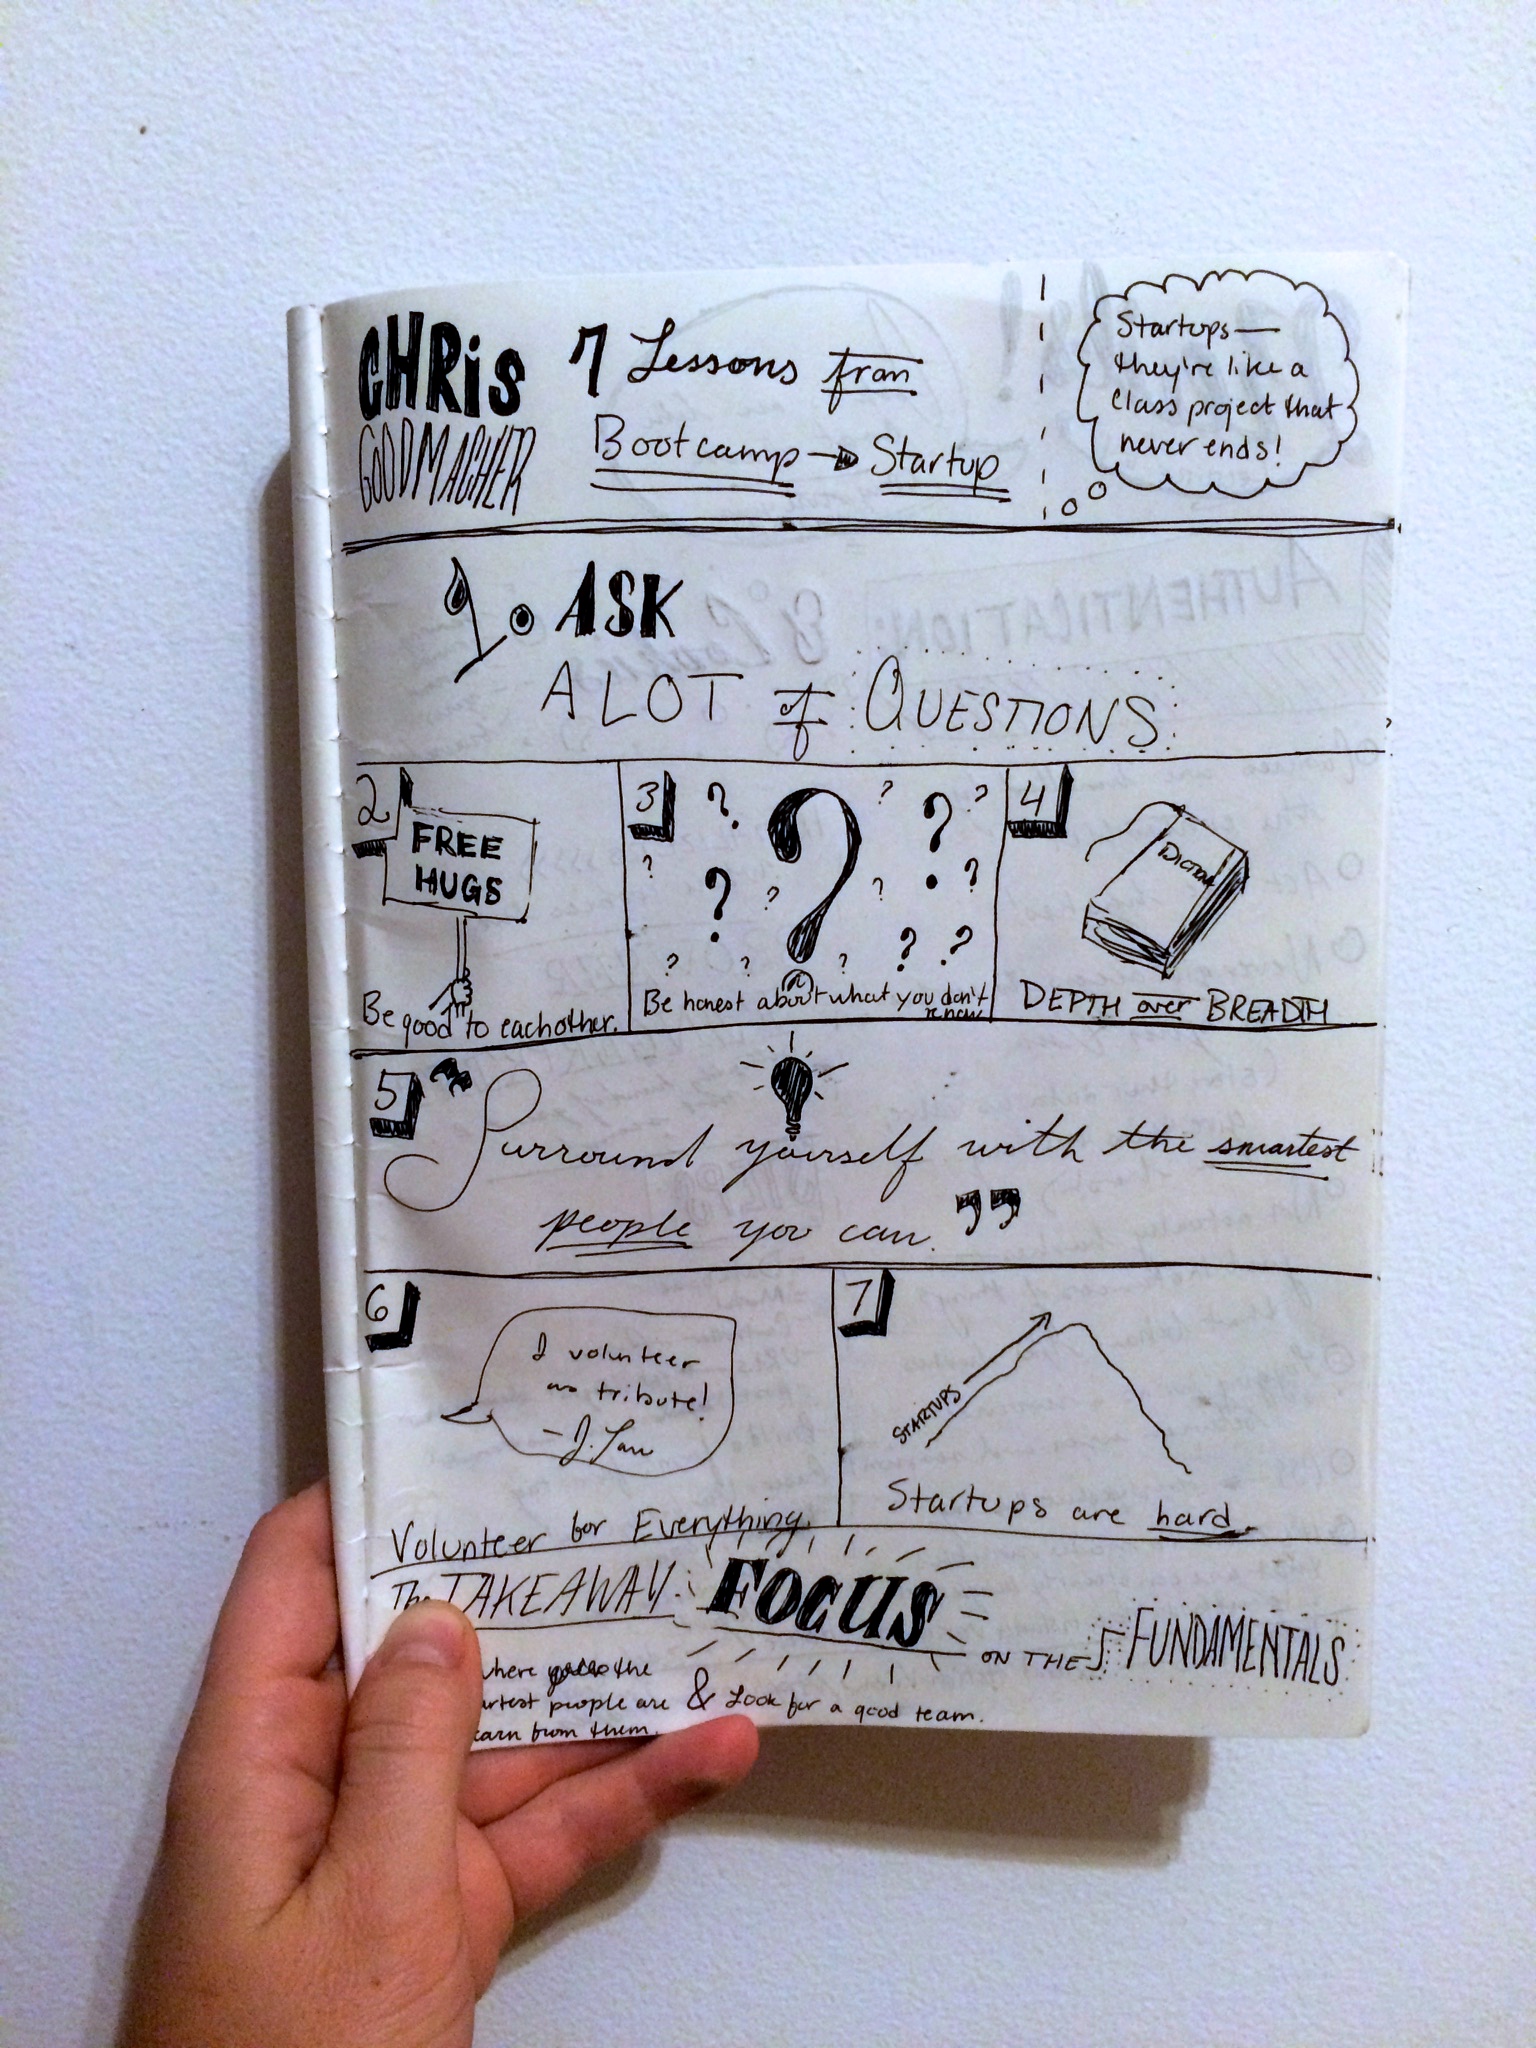 CHRis
GOODMACHER
7 Lessons from
Bootcamp → Startup
Startups—
they're like a
class project that
never ends!
1. ASK
A LOT of QUESTIONS
2
FREE
HUGS
Be good to eachother.
3
? ? ? ? ? ? ? ? ? ? ? ? ? ? ?
Be honest about what you don't
know
4
DICTION
DEPTH over BREADTH
5
"Surround yourself with the smartest
people you can."
6
I volunteer
as tribute!
- J. Law
Volunteer for Everything.
7
STARTUPS
Startups are hard.
The TAKEAWAY: FOCUS ON THE FUNDAMENTALS
where the
people are & Look for a good team.
from them.